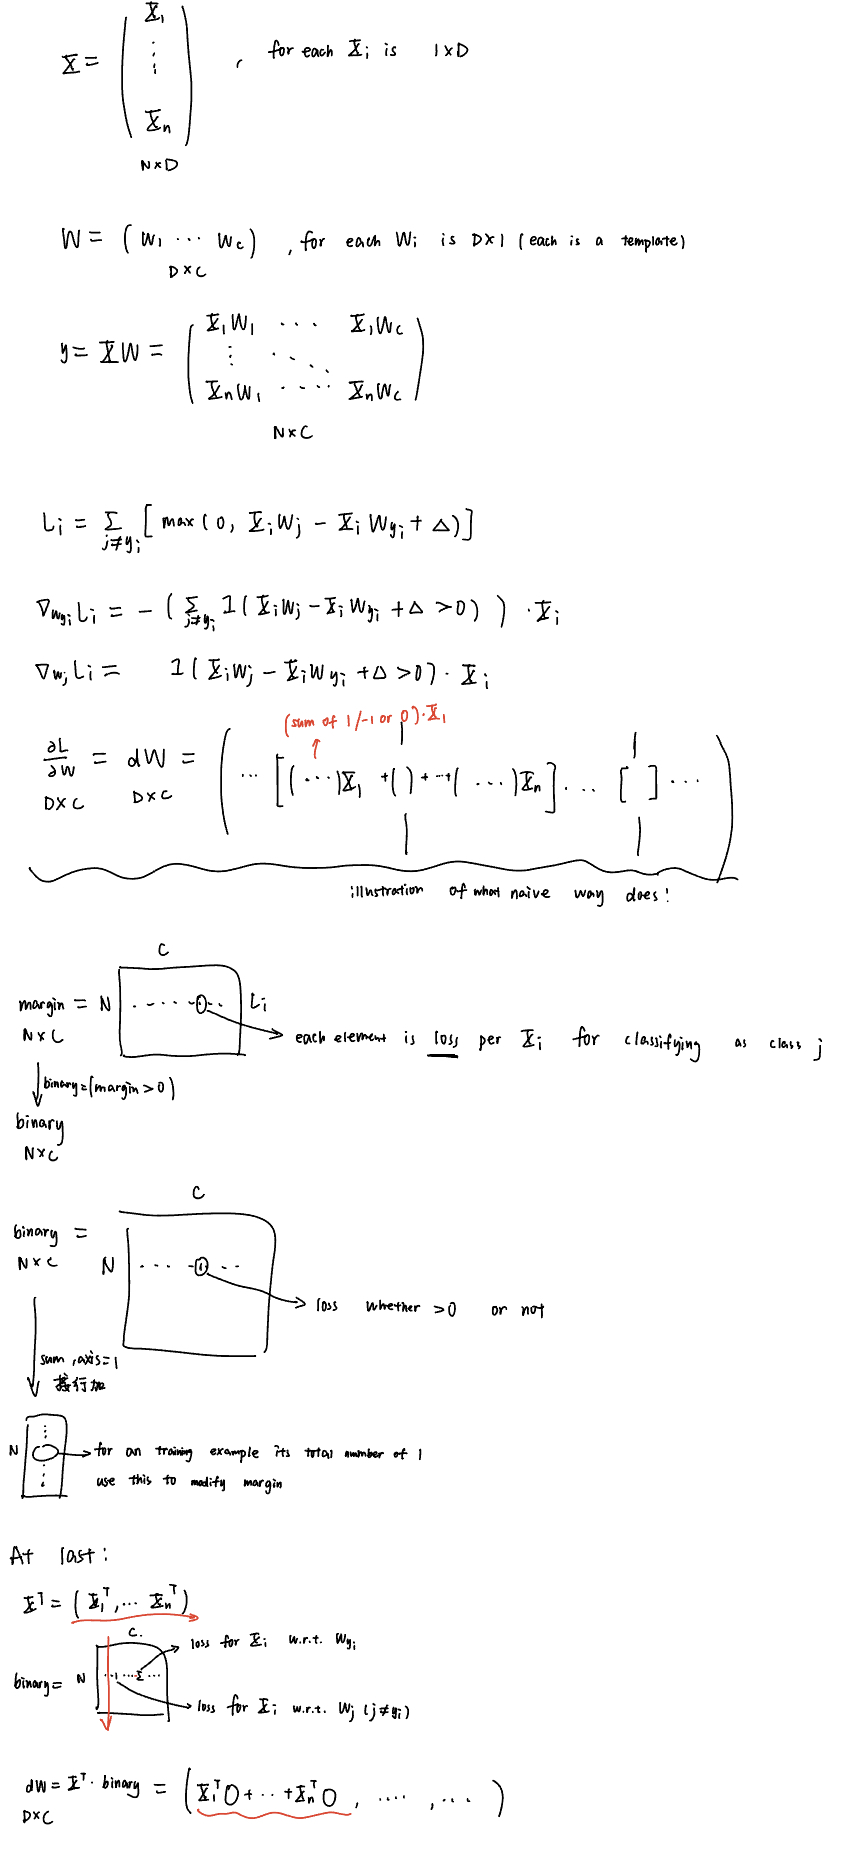 X = ( X₁ ⋮ Xₙ ) , for each Xᵢ is 1×D
N×D
W = ( W₁ ⋯ Wc ) , for each Wᵢ is D×1 (each is a template)
D×C
y = XW = ( X₁W₁ ⋯ X₁Wc
⋮ ⋱
XₙW₁ ⋯ XₙWc )
N×C
Lᵢ = Σ_{j≠yᵢ} [ max(0, XᵢWⱼ − XᵢW_{yᵢ} + Δ) ]
∇_{W_{yᵢ}} Lᵢ = − ( Σ_{j≠yᵢ} 1(XᵢWⱼ − XᵢW_{yᵢ} + Δ > 0) ) · Xᵢ
∇_{Wⱼ} Lᵢ = 1(XᵢWⱼ − XᵢW_{yᵢ} + Δ > 0) · Xᵢ
(sum of 1/-1 or 0)·X₁
∂L/∂W = dW = ( ⋯ [(⋯)X₁ +( )+ ⋯ +(⋯)Xₙ] ⋯ [ ] ⋯ )
D×C D×C
illustration of what naive way does!
C
margin = N ⋯ Lᵢ
N×C
each element is loss per Xᵢ for classifying as class j
binary=(margin>0)
binary
N×C
C
binary =
N×C N
loss whether >0 or not
sum, axis=1
按行加
N for an training example its total number of 1
use this to modify margin
At last:
Xᵀ = ( X₁ᵀ, ⋯ Xₙᵀ )
C.
loss for Xᵢ w.r.t. W_{yᵢ}
binary = N ⋯1⋯Σ⋯
loss for Xᵢ w.r.t. Wⱼ (j≠yᵢ)
dW = Xᵀ· binary = ( X₁ᵀO + ⋯ + XₙᵀO , ⋯⋯ , ⋯ )
D×C